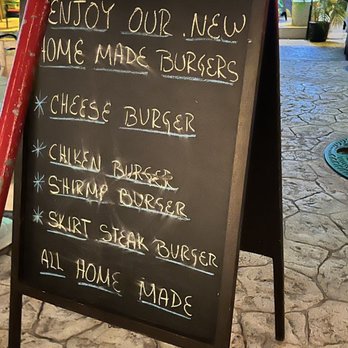 ENJOY OUR NEW
HOME MADE BURGERS
* CHEESE BURGER
* CHIKEN BURGER
* SHIRMP BURGER
* SKIRT STEAK BURGER
ALL HOME MADE